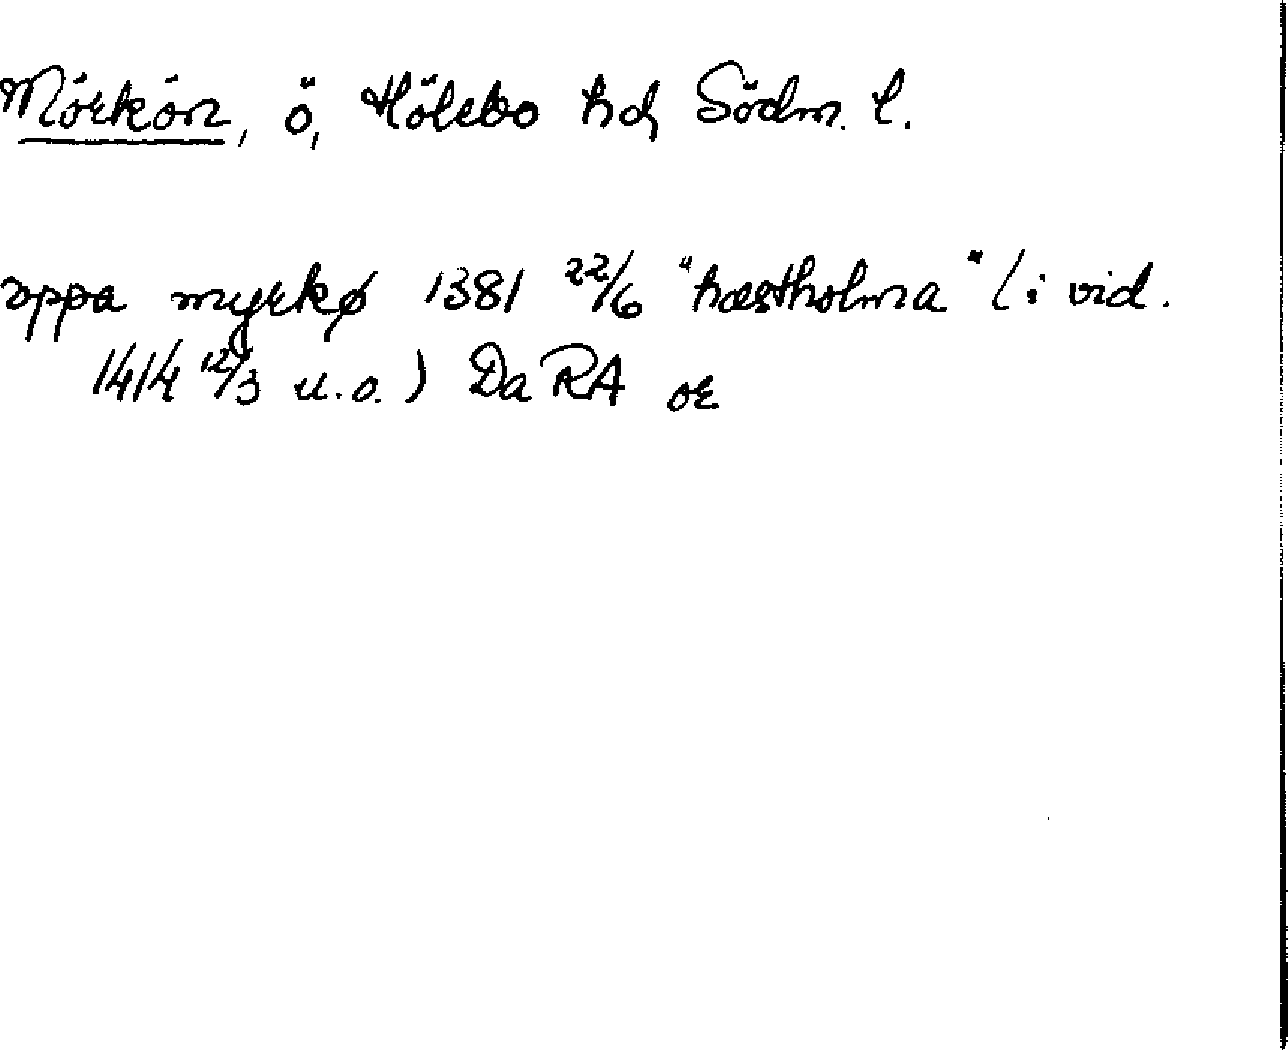 Mörkön, ö, Hölebo hd, Södm. l.
oppa myrkø 1381 22/6 "hæstholma" (i vid.
1414 12/3 u.o.) Da RA or